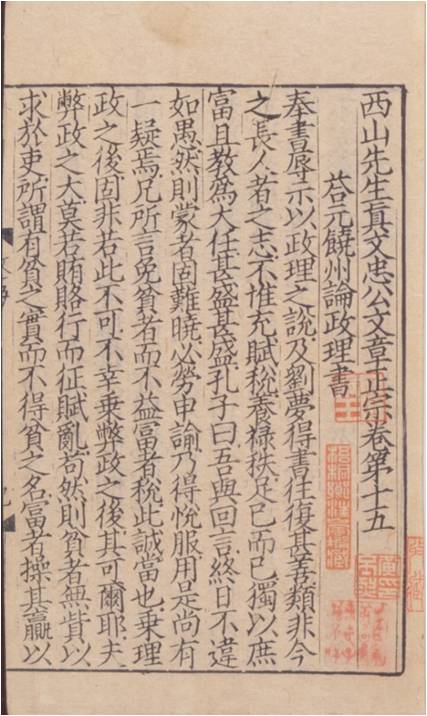 西山先生真文忠公文章正宗卷第十五
荅元饒州論政理書
奉書辱示以政理之說及劉夢得書往復甚善類非今
之長人者之志不惟充賦稅養祿秩足已而已獨以庶
富且教爲大任甚盛甚盛孔子曰吾與回言終日不違
如愚然則蒙者固難曉必勞申諭乃得悅服用是尚有
一疑焉凡所言免貧者而不益富者稅此誠當也乗理
政之後固非若此不可不幸乗弊政之後其可爾耶夫
弊政之大莫若賄賂行而征賦亂苟然則貧者無貲以
求於吏所謂有貧之實而不得貧之名富者操其贏以